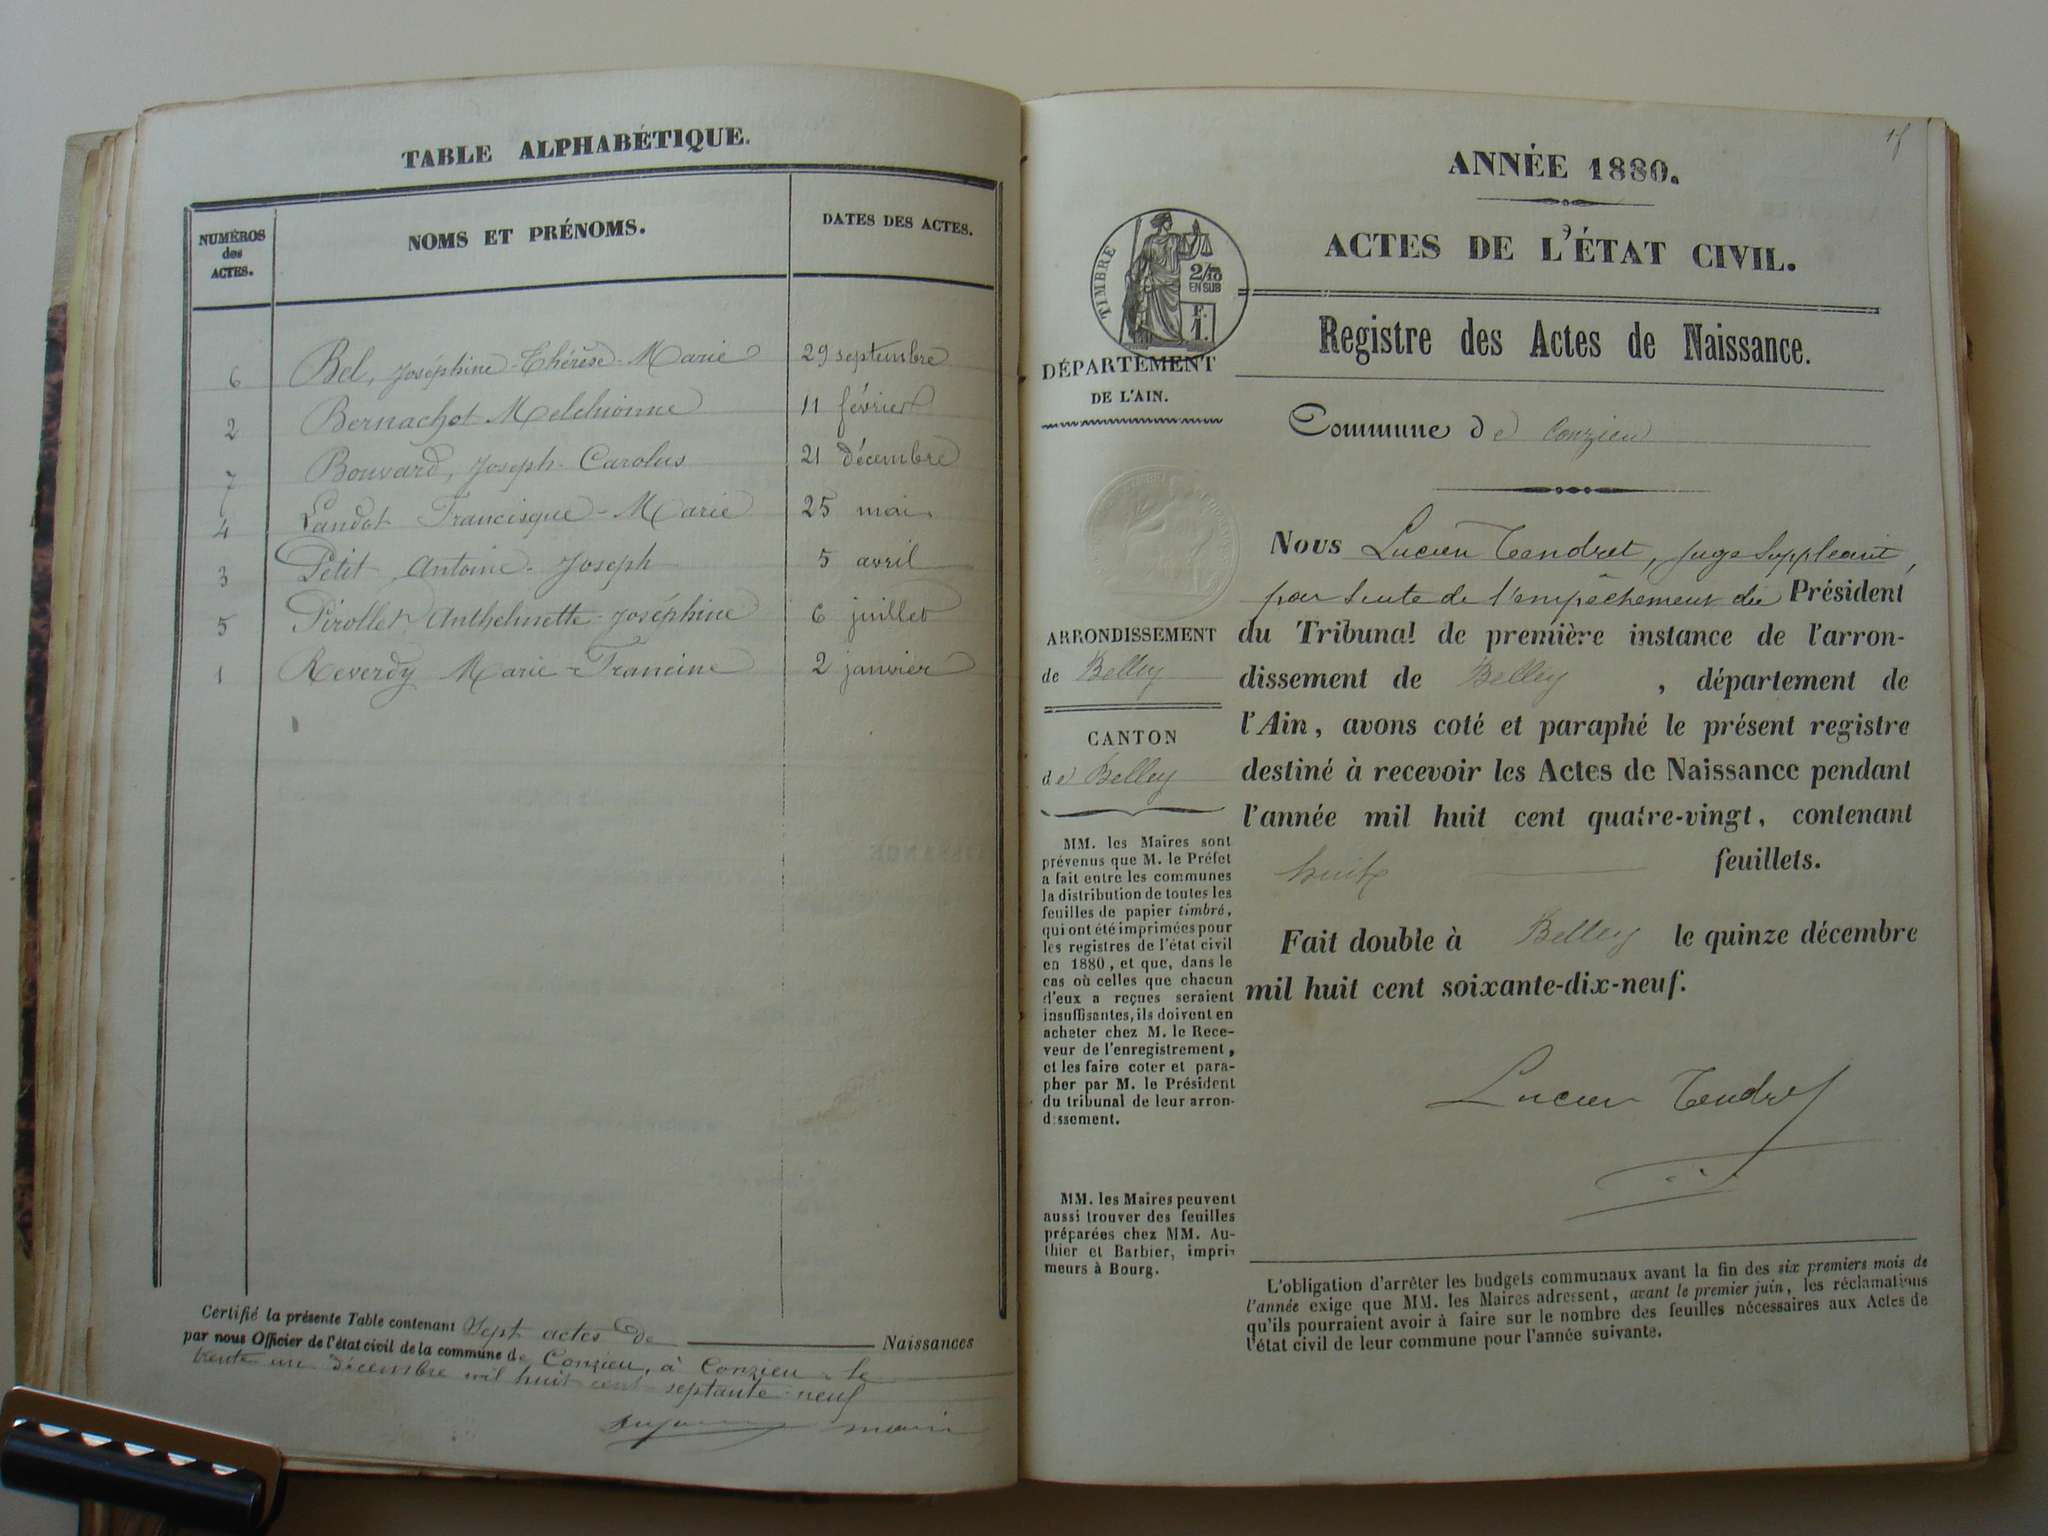 TABLE ALPHABÉTIQUE.
NUMÉROS des ACTES. NOMS ET PRÉNOMS. DATES DES ACTES.
6 Bel, Joséphine-Thérèse-Marie 29 septembre
2 Bernachot Melchionne 11 février
7 Bouvard, Joseph-Carolus 21 décembre
4 Landot Francisque-Marie 25 mai
3 Petit Antoine-Joseph 5 avril
5 Pirollet Anthelmette-Joséphine 6 juillet
1 Reverdy Marie-Francine 2 janvier
Certifié la présente Table contenant Sept actes de Naissances
par nous Officier de l'état civil de la commune de Conzieu, à Conzieu le
trente un décembre mil huit cent septante neuf
maire
15
ANNÉE 1880.
ACTES DE L'ÉTAT CIVIL.
TIMBRE
2/10
EN SUB
F.
1.
Registre des Actes de Naissance.
DÉPARTEMENT
DE L'AIN.
Commune de Conzieu
Nous Lucien Tendret, juge Suppléant,
par Suite de l'empêchement du Président
du Tribunal de première instance de l'arron-
dissement de Belley, département de
l'Ain, avons coté et paraphé le présent registre
destiné à recevoir les Actes de Naissance pendant
l'année mil huit cent quatre-vingt, contenant
huit feuillets.
Fait double à Belley le quinze décembre
mil huit cent soixante-dix-neuf.
Lucien Tendret
ARRONDISSEMENT
de Belley
CANTON
de Belley
MM. les Maires sont
prévenus que M. le Préfet
a fait entre les communes
la distribution de toutes les
feuilles de papier timbré,
qui ont été imprimées pour
les registres de l'état civil
en 1880, et que, dans le
cas où celles que chacun
d'eux a reçues seraient
insuffisantes, ils doivent en
acheter chez M. le Rece-
veur de l'enregistrement,
et les faire coter et para-
pher par M. le Président
du tribunal de leur arron-
dissement.
MM. les Maires peuvent
aussi trouver des feuilles
préparées chez MM. Au-
thier et Barbier, impri-
meurs à Bourg.
L'obligation d'arrêter les budgets communaux avant la fin des six premiers mois de
l'année exige que MM. les Maires adressent, avant le premier juin, les réclamations
qu'ils pourraient avoir à faire sur le nombre des feuilles nécessaires aux Actes de
l'état civil de leur commune pour l'année suivante.